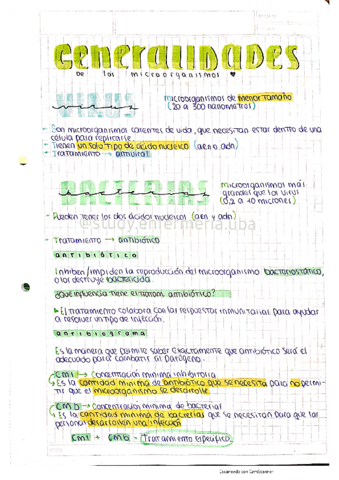 Generalidades
De los microorganismos
VIRUS
virus
microorganismos de menor tamaño
(20 a 300 nanometros)
- Son microorganismos carentes de vida, que necesitan estar dentro de una
célula para replicarse.
- Tienen un solo tipo de ácido nucleico (arn o adn)
- Tratamiento → antiviral
BACTERIAS
bacterias
microorganismos más
grandes que los virus
(0.2 a 10 micrones)
- Pueden tener los dos ácidos nucleicos (arn y adn)
@study.enfermeria.uba
- Tratamiento → antibiótico
antibiótico
Inhiben/impiden la reproducción del microorganismo bacteriostático,
o los destruye bactericida
¿Que influencia tiene el tratam. antibiótico?
▸ El tratamiento colabora con las respuestas inmunitarias para ayudar
a resolver un tipo de infección.
antibiograma
Es la manera que permite saber exactamente que antibiótico será el
adecuado para combatir al patógeno.
CMI → Concentración minima inhibitoria
↳ Es la cantidad minima de antibiótico que se necesita para no permi-
tir que el microorganismo se desarrolle.
CMB → Concentración minima de bacterias
↳ Es la cantidad minima de bacterias que se necesitan para que las
personas desarrollen una infección
CMI + CMB = Tratamiento específico
Escaneado con CamScanner